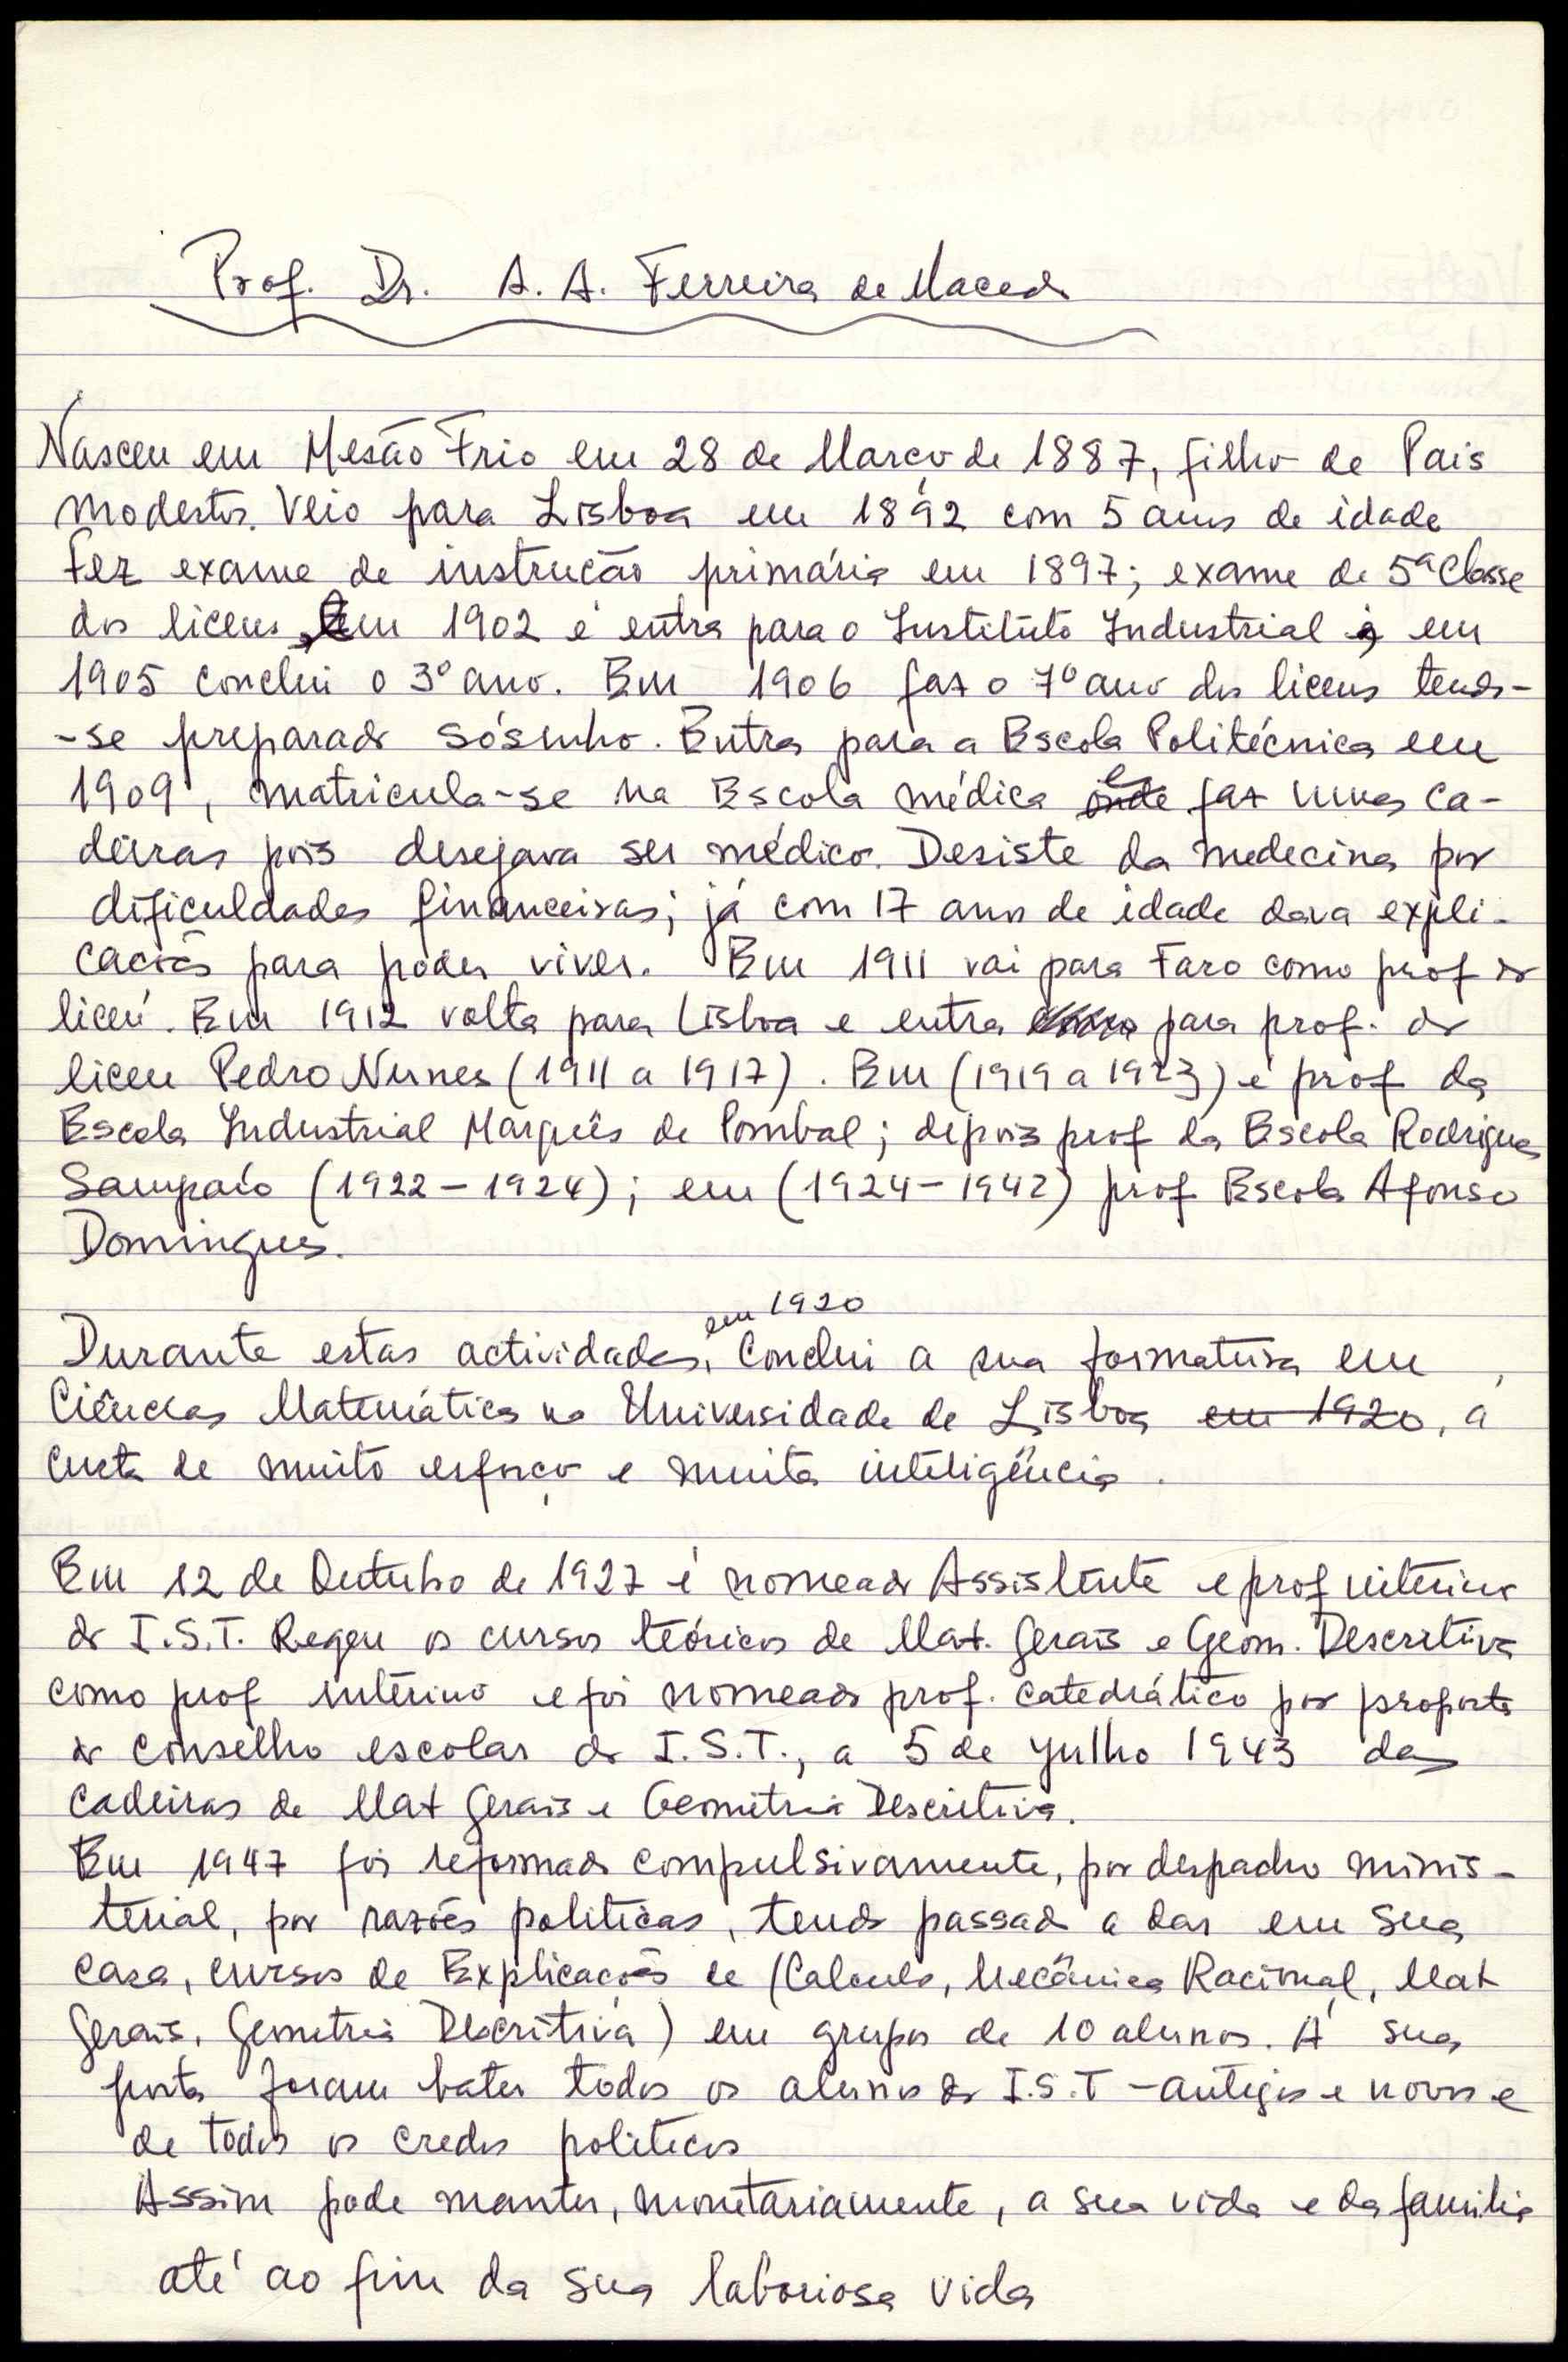 Prof. Dr. A. A. Ferreira de Macedo
Nasceu em Mesão Frio em 28 de Março de 1887, filho de Pais
modestos. Veio para Lisboa em 1892 com 5 anos de idade
Fez exame de instrução primária em 1897; exame de 5ª Classe
dos liceus, em 1902 e entra para o Instituto Industrial e, em
1905 conclui o 3º ano. Em 1906 faz o 7º ano dos liceus tendo-
-se preparado sósinho. Entra para a Escola Politécnica em
1909, matricula-se na Escola médica onde e faz umas ca-
deiras pois desejava ser médico. Desiste da medecina por
dificuldades financeiras; já com 17 anos de idade dava expli-
cações para poder viver. Em 1911 vai para Faro como prof do
liceu. Em 1912 volta para Lisboa e entra para prof. do
liceu Pedro Nunes (1911 a 1917). Em (1919 a 1923) é prof da
Escola Industrial Marquês de Pombal; depois prof da Escola Rodrigues
Sampaio (1922-1924); em (1924-1942) prof Escola Afonso
Domingues.
em 1920
Durante estas actividades, Conclui a sua formatura em
Ciências Matemática na Universidade de Lisboa em 1920, a
custa de muito esforço e muita inteligência.
Em 12 de Outubro de 1927 é nomeado Assistente e prof interino
do I.S.T. Regeu os cursos teóricos de Mat. Gerais e Geom. Descritiva
como prof interino e foi nomeado prof. catedrático por proposta
do conselho escolar do I.S.T., a 5 de Julho 1943 das
cadeiras de Mat Gerais e Geometria Descritiva.
Em 1947 foi reformado compulsivamente, por despacho minis-
terial, por razões politicas, tendo passado a dar em sua
casa, cursos de Explicações de (Calculo, Mecânica Racional, Mat
Gerais, Geometria Descritiva) em grupos de 10 alunos. Á sua
porta foram bater todos os alunos do I.S.T - antigos e novos e
de todos os credos politicos
Assim pode manter, monetariamente, a sua vida e da familia
até ao fim da sua laboriosa vida